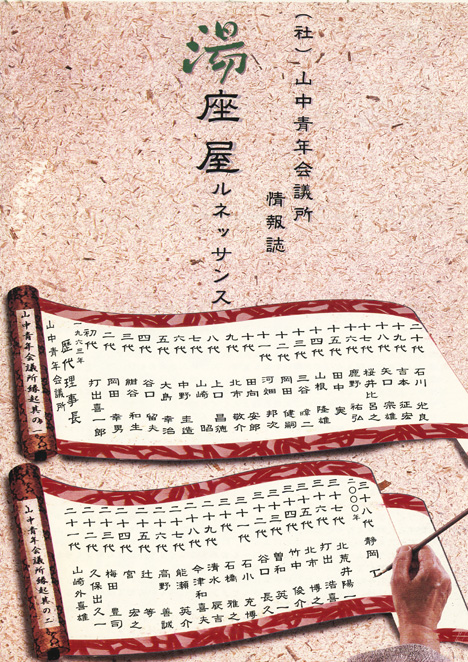 （社）山中青年会議所
情報誌
湯座屋ルネッサンス
山中青年会議所縁起其の一
山中青年会議所
歴代理事長
一九六三年
初代 打出喜一郎
二代 岡田 幸男
三代 紺谷 和生
四代 谷口 留夫
五代 大島 幸治
六代 中野 圭造
七代 山崎 昭
八代 上口 昌徳
九代 北市 敬介
十代 田向 安郎
十一代 河畑 邦次
十二代 岡田 健嗣
十三代 三谷 峰二
十四代 山根 隆雄
十五代 田中 実
十六代 鹿野 祐弘
十七代 桜井比呂之
十八代 矢口 宗雄
十九代 吉本 征宏
二十代 石川 光良
山中青年会議所縁起其の二
二十一代 山崎外喜雄
二十二代 久保出久一
二十三代 梅田 豊司
二十四代 宮 宏之
二十五代 辻 等
二十六代 高野 善誠
二十七代 能瀬 英介
二十八代 今津和喜夫
二十九代 清水 辰吉
三十代 石橋 雅之
三十一代 石小 充博
三十二代 谷口 長久
三十三代 曽和 英一
三十四代 竹中 俊介
三十五代 北市 博之
三十六代 打出 浩喜
三十七代 北荒井陽一
二〇〇〇年
三十八代 静岡